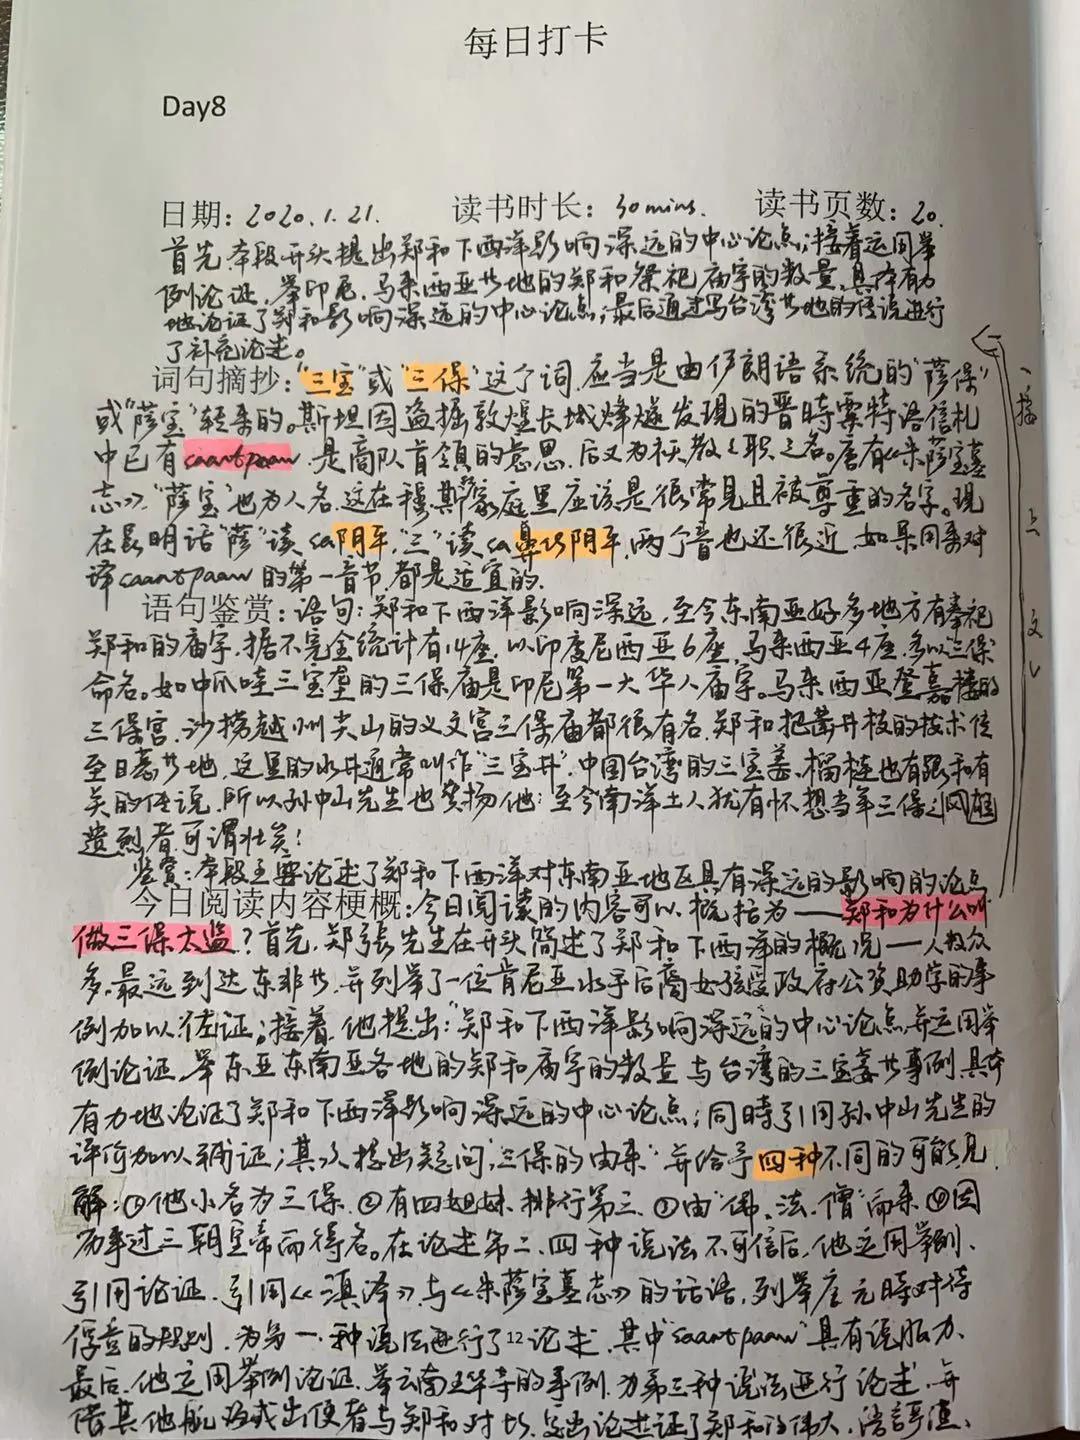 每日打卡
Day8
日期：2020.1.21. 读书时长：30mins. 读书页数：20.
首先,本段开头提出郑和下西洋影响深远的中心论点;接着运用举
例论证,举印尼、马来西亚等地的郑和祭祀庙宇的数量,具体有力
地论证了郑和影响深远的中心论点;最后通过写台湾等地的传说进行
了补充论述。
词句摘抄：“三宝”或“三保”这个词,应当是由伊朗语系统的“萨保”
或“萨宝”转来的。斯坦因盗掘敦煌长城烽燧发现的晋時粟特语信札
中已有saartpaaw,是商队首领的意思,后又为祆教之职之名。唐有《来萨宝墓
志》,“萨宝”也为人名,这在穆斯家庭里应该是很常见且被尊重的名字。现
在昆明话“萨”读sa阴平,“三”读sa鼻识阴平,两个音也还很近,如果用来对
译saartpaaw的第一音节,都是适宜的.
语句鉴赏：语句:郑和下西洋影响深远,至今东南亚好多地方有奉祀
郑和的庙宇,据不完全统计有14座,以印度尼西亚6座,马来西亚4座,多以“三保”
命名。如中爪哇三宝垄的三保庙是印尼第一大华人庙宇。马来西亚登嘉楼的
三保宫、沙捞越州尖山的义文宫三保庙都很有名,郑和把凿井技的技术传
至日惹等地,这里的水井通常叫作“三宝井”.中国台湾的三宝姜、榴梿也有跟和有
关的传说,所以孙中山先生也赞扬他:至今南洋土人犹有怀想当年三保之
遗烈者,可谓壮矣!
鉴赏:本段主要论述了郑和下西洋对东南亚地区具有深远的影响的论点
今日阅读内容梗概：今日阅读的内容可以概括为——郑和为什么叫
做三保太监?首先,郑張先生在开头简述了郑和下西洋的概况——人数众
多,最远到达东非等,并列举了一位肯尼亚水手后裔女孩受政府公资助学的事
例加以佐证;接着,他提出:“郑和下西洋影响深远”的中心论点,并运用举
例论证,举东亚东南亚各地的郑和庙宇的数量与台湾的三宝姜等事例,具体
有力地论证了郑和下西洋影响深远的中心论点;同時引用孙中山先生的
评价加以辅证;其次提出疑问,“三保的由来”并给予四种不同的可能见
解:①他小名为三保.②有四姐妹,排行第三.③由“佛、法、僧”而来.④因
为事过三朝皇帝而得名。在论述第二、四种说法不可信后,他运用举例、
引用论证.引用《滇泽》与《来萨宝墓志》的话语,列举唐元時对待
俘虏的规则,为第一种说法进行了论述,其中“saartpaaw”具有说服力.
12
最后,他运用举例论证,举云南玉华寺的事例,为第三种说法进行论述,并
借其他航海或出使者与郑和对比,突出论述证了郑和的伟大,
接上文